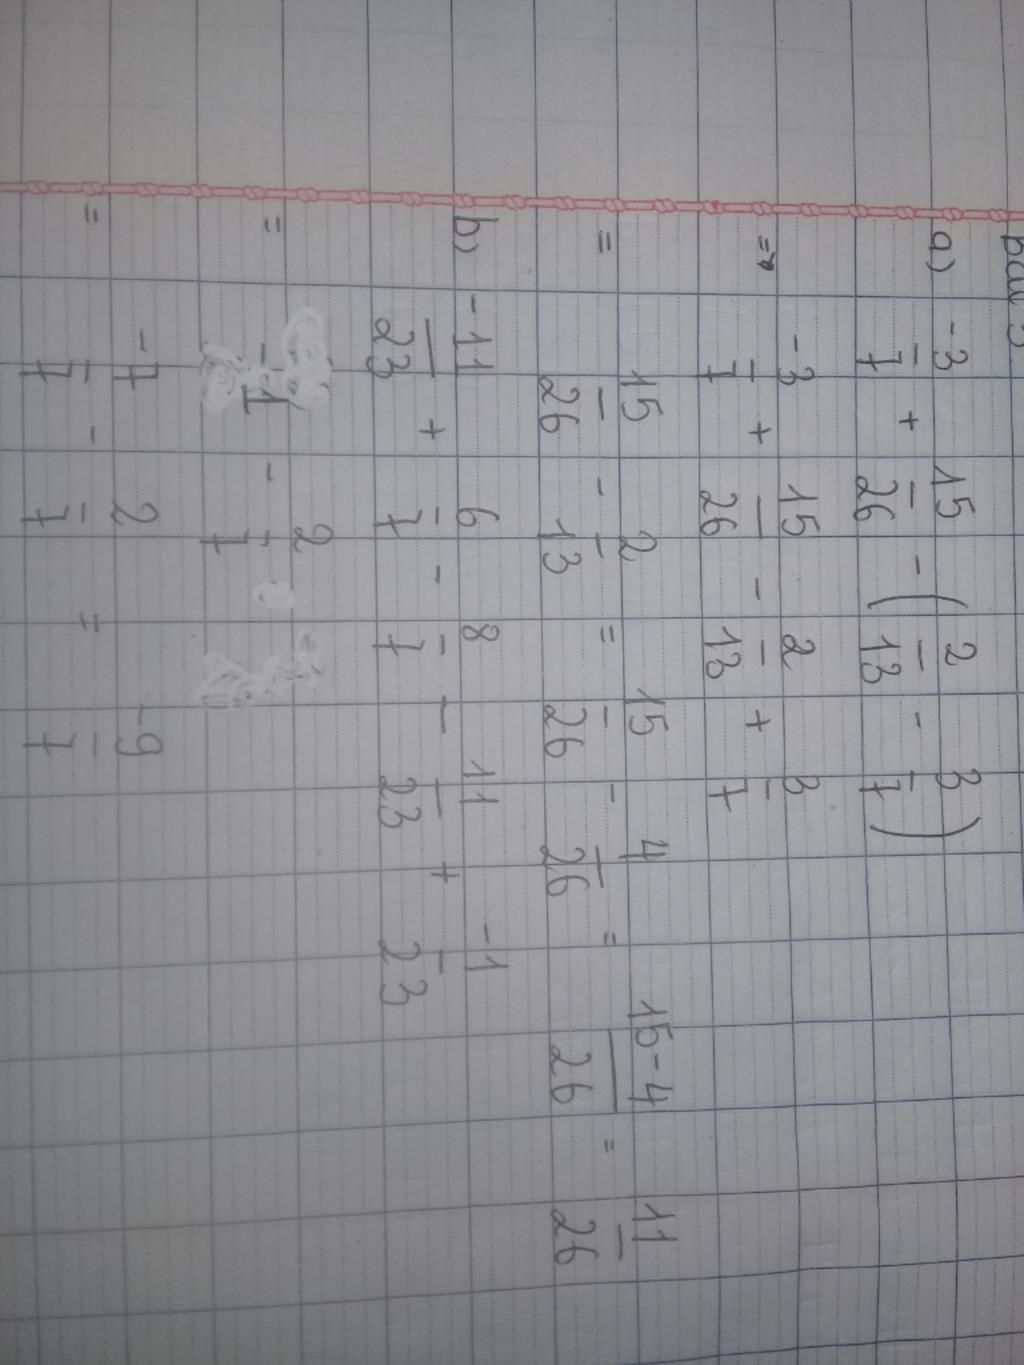 a) -3/7 + 15/26 - (2/13 - 3/7)
=> -3/7 + 15/26 - 2/13 + 3/7
= 15/26 - 2/13 = 15/26 - 4/26 = 15-4/26 = 11/26
b) -11/23 + 6/7 - 8/7 - 11/23 + -1/23
= -1 - 2/7
= -7/7 - 2/7 = -9/7